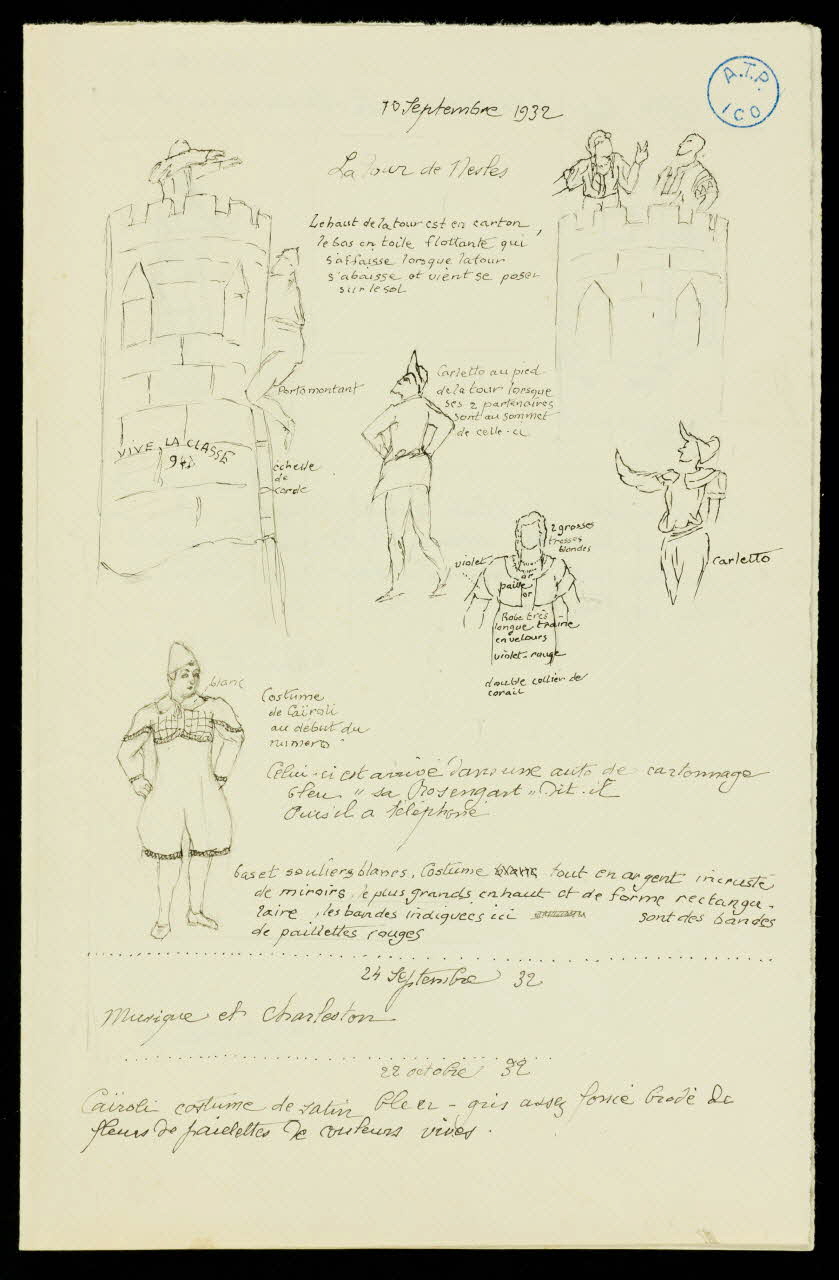 A.T.P.
ICO
10 Septembre 1932
La tour de Nesles
Le haut de la tour est en carton,
le bas en toile flottante qui
s'affaisse lorsque la tour
s'abaisse et vient se poser
sur le sol
Portamontant
VIVE LA CLASSE
échelle
de
corde
Carletto au pied
de la tour lorsque
ses 2 partenaires
sont au sommet
de celle-ci
Carletto
2 grosses
tresses
blondes
violet
or
paille
or
Robe très
longue traine
en velours
violet-rouge
double collier de
corail
blanc
Costume
de Caïroli
au début du
numero
Celui-ci est arrivé dans une auto de cartonnage
bleu "sa Rosengart" dit-il
Puis il a téléphoné
bas et souliers blancs, Costume blanc tout en argent incrusté
de miroirs, + plus grands en haut et de forme rectangu-
laire, les bandes indiquées ici sont des bandes
de paillettes rouges
24 Septembre 32
Musique et Charleston
22 octobre 32
Caïroli costume de satin bleu-gris assez foncé brodé de
fleurs de paielettes de couleurs vives.